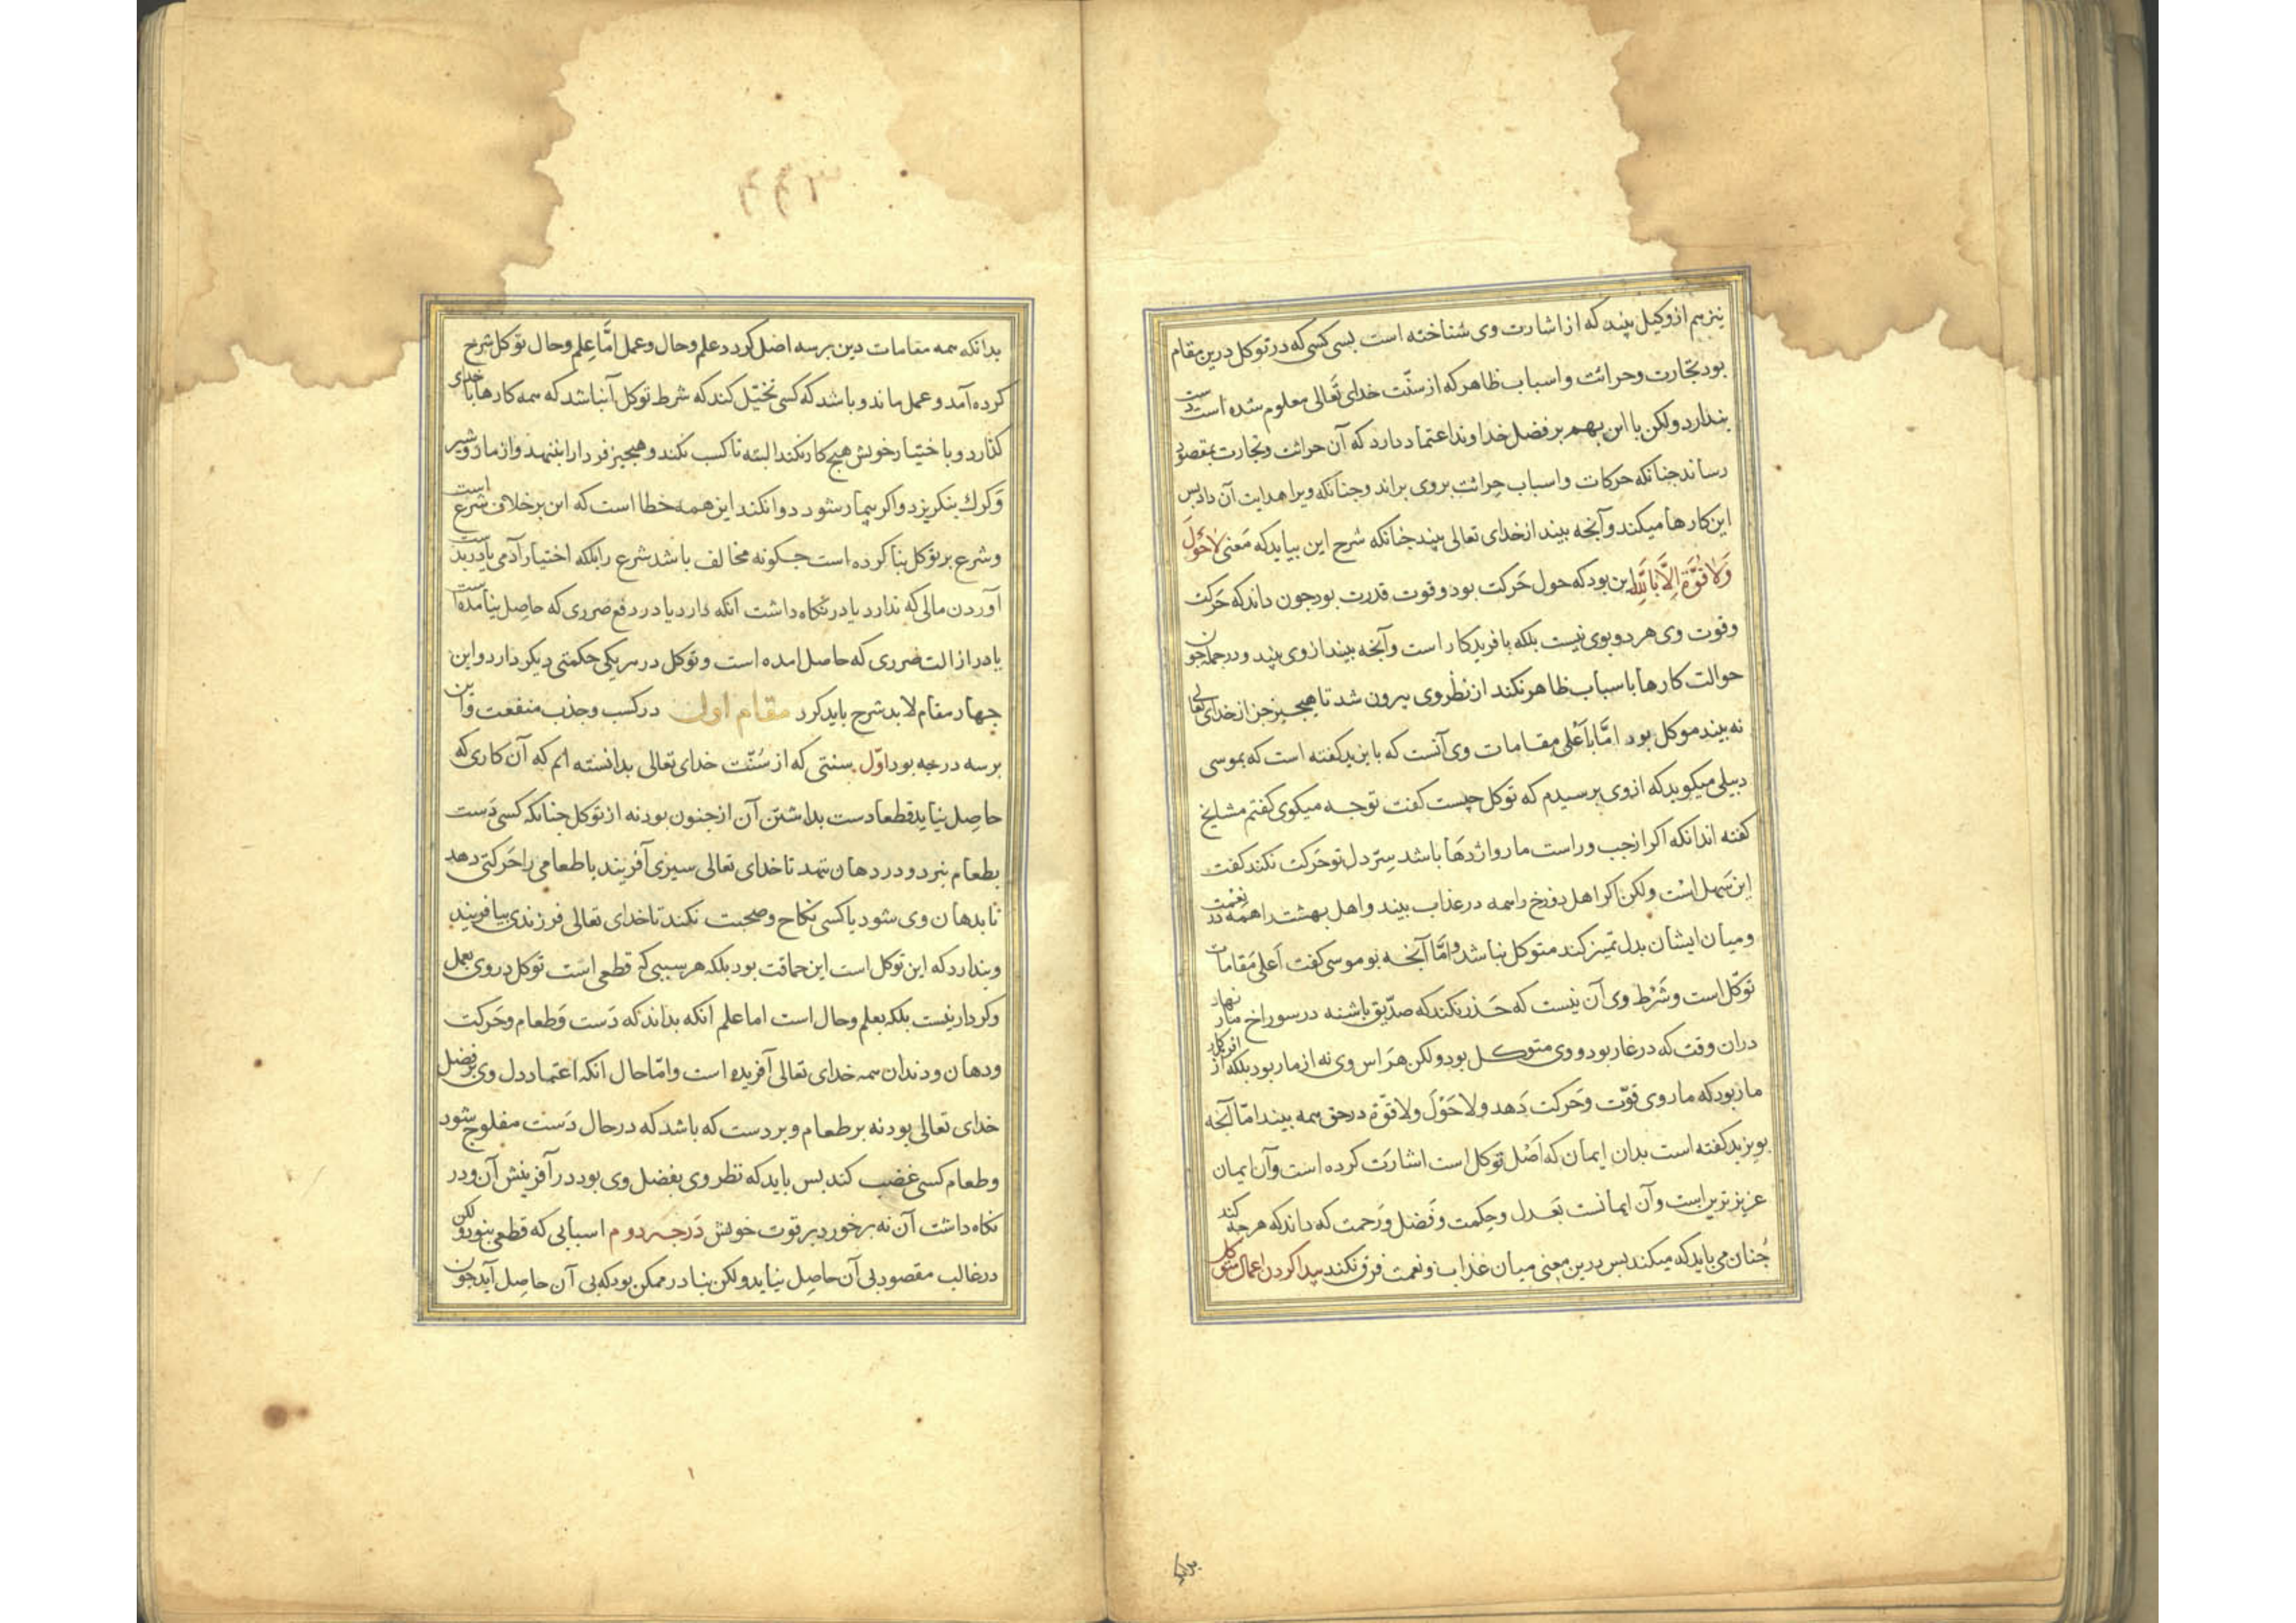 نیز هم از وکیل بیند که از اشارت وی شناخته است بس کسی که در توکل درین مقام
بود تجارت و حراثت و اسباب ظاهر که از سنّت خدای تَعالی معلوم شده است دست
بندارد ولکن با این بهم بر فضل خداوند اعتماد دارد که آن حراثت و تجارت بمقصود
رساند جنانکه حرکات و اسباب حِراثت بروی براند و جنانکه ویرا هدایت آن داد بس
این کارها میکند و آنجه بیند از خدای تعالی بیند جنانکه شرح این بیاید که مَعنی لاحَوْلَ
وَلا قُوَّةَ اِلَّا بِاللّٰهِ این بود که حول حَرکت بود و قوت قدرت بود جون داند که حَرکت
و قوت وی هر دو بوی نیست بلکه بافریدکار است و آنجه بیند از وی بیند و در جمله جون
حوالت کارها با سباب ظاهر نکند از نظر وی بیرون شد تا هیجیز جز از خدای تعالی
نه بیند موکل بود امَّا بأعْلی مقامات وی آنست که بایزید کفته است که بموسی
دبیلی میکوید که از وی برسیدم که توکل جیست کفت تو جه میکوی کفتم مشایخ
کفته اند انکه اکر از جب و راست مار و اژدَها باشد سِرّ دل تو حَرکت نکند کفت
این سَهل اسْت ولکن اکر اهل دوزخ را همه در عذاب بیند و اهل بهشت را همه در نعمت
و میان ایشان بدل تمیز کند متوکل نباشد و امَّا آنجه بو موسی کفت أعلی مَقامات
توکّل است و شَرْط وی آن نیست که حَذر نکند که صدّیق باشنه در سوراخ مار نهاد
دران وقت که در غار بود و وی متوکل بود ولکن هَراس وی نه از مار بود بلکه از افریدکار
مار بود که مار وی قوّت و حَرکت دَهد ولا حَوْلَ ولا قوّة در حق همه بیند امّا آنجه
بویزید کفته است بدان ایمان که اَصْل توکل است اشارَت کرده است و آن ایمان
عزیزترین است و آن ایمانست بَعدل و حِکمت و فَضل و رَحمت که داند که هرجه کند
جُنان می باید که میکند بس درین معنی میان عذاب و نعمت فرق نکند بیدا کردن اعمال توکل
بدانک
بدانکه همه مقامات دین بر سه اصل کردد علم و حال و عمل امَّا عِلم و حال توکل شرح
کرده آمد و عمل ماند و باشد که کسی تخیّل کند که شرط توکل آن باشد که همه کارها با خدای
کذارد و باختیار خویش هیج کار نکند البته تا کسب نکند و هیجیز فردا را بننهد و از مار و شیر
و کرك بنکریزد و اکر بیمار شود دوا نکند این همه خطا است که این بر خلاف شرع است
و شرع بر توکل بنا کرده است جکونه مخالف باشد شرع را بلکه اختیار آدمی یا در بدست
آوردن مالی که ندارد یا در نکاه داشت آنکه دارد یا در دفع ضرری که حاصِل نیامده است
یا در ازالت ضرری که حاصل امده است و توکل در هر یکی حکمتی دیکر دارد و این
جهار مقام لابد شرح باید کرد مقام اول در کسب و جذب منفعت و این
بر سه درجه بود اوّل سنتی که از سُنّت خدای تعالی بدانسته ایم که آن کار بی که
حاصِل نیاید قطعا دست بداشتن آن از جنون بود نه از توکل جنانکه کسی دَست
بطعام نبرد و در دهان ننهد تا خدای تعالی سیری آفریند یا طعامی را حَرکتی دهد
تا بدهان وی شود یا کسی نکاح و صحبت نکند تا خدای تعالی فرزندی بیافریند
و بندارد که این توکل است این حماقت بود بلکه هر سببی که قطعی است توکل در وی بعمل
و کردار نیست بلکه بعلم و حال است اما علم آنکه بداند که دَست و طعام و حَرکت
و دهان و دندان همه خدای تعالی آفریده است و امّا حال آنکه اعتماد دل وی بر فضل
خدای تعالی بود نه بر طعام و بر دست که باشد که در حال دَست مفلوج شود
و طعام کسی غضب کند بس باید که نظر وی بفضل وی بود در آفرینش آن و در
نکاه داشت آن نه بر خود و بر قوت خویش دَرجه دوم اسبابی که قطعی نبود ولکن
در غالب مقصود بی آن حاصِل نیاید ولکن بنادر ممکن بود که بی آن حاصِل آید جون